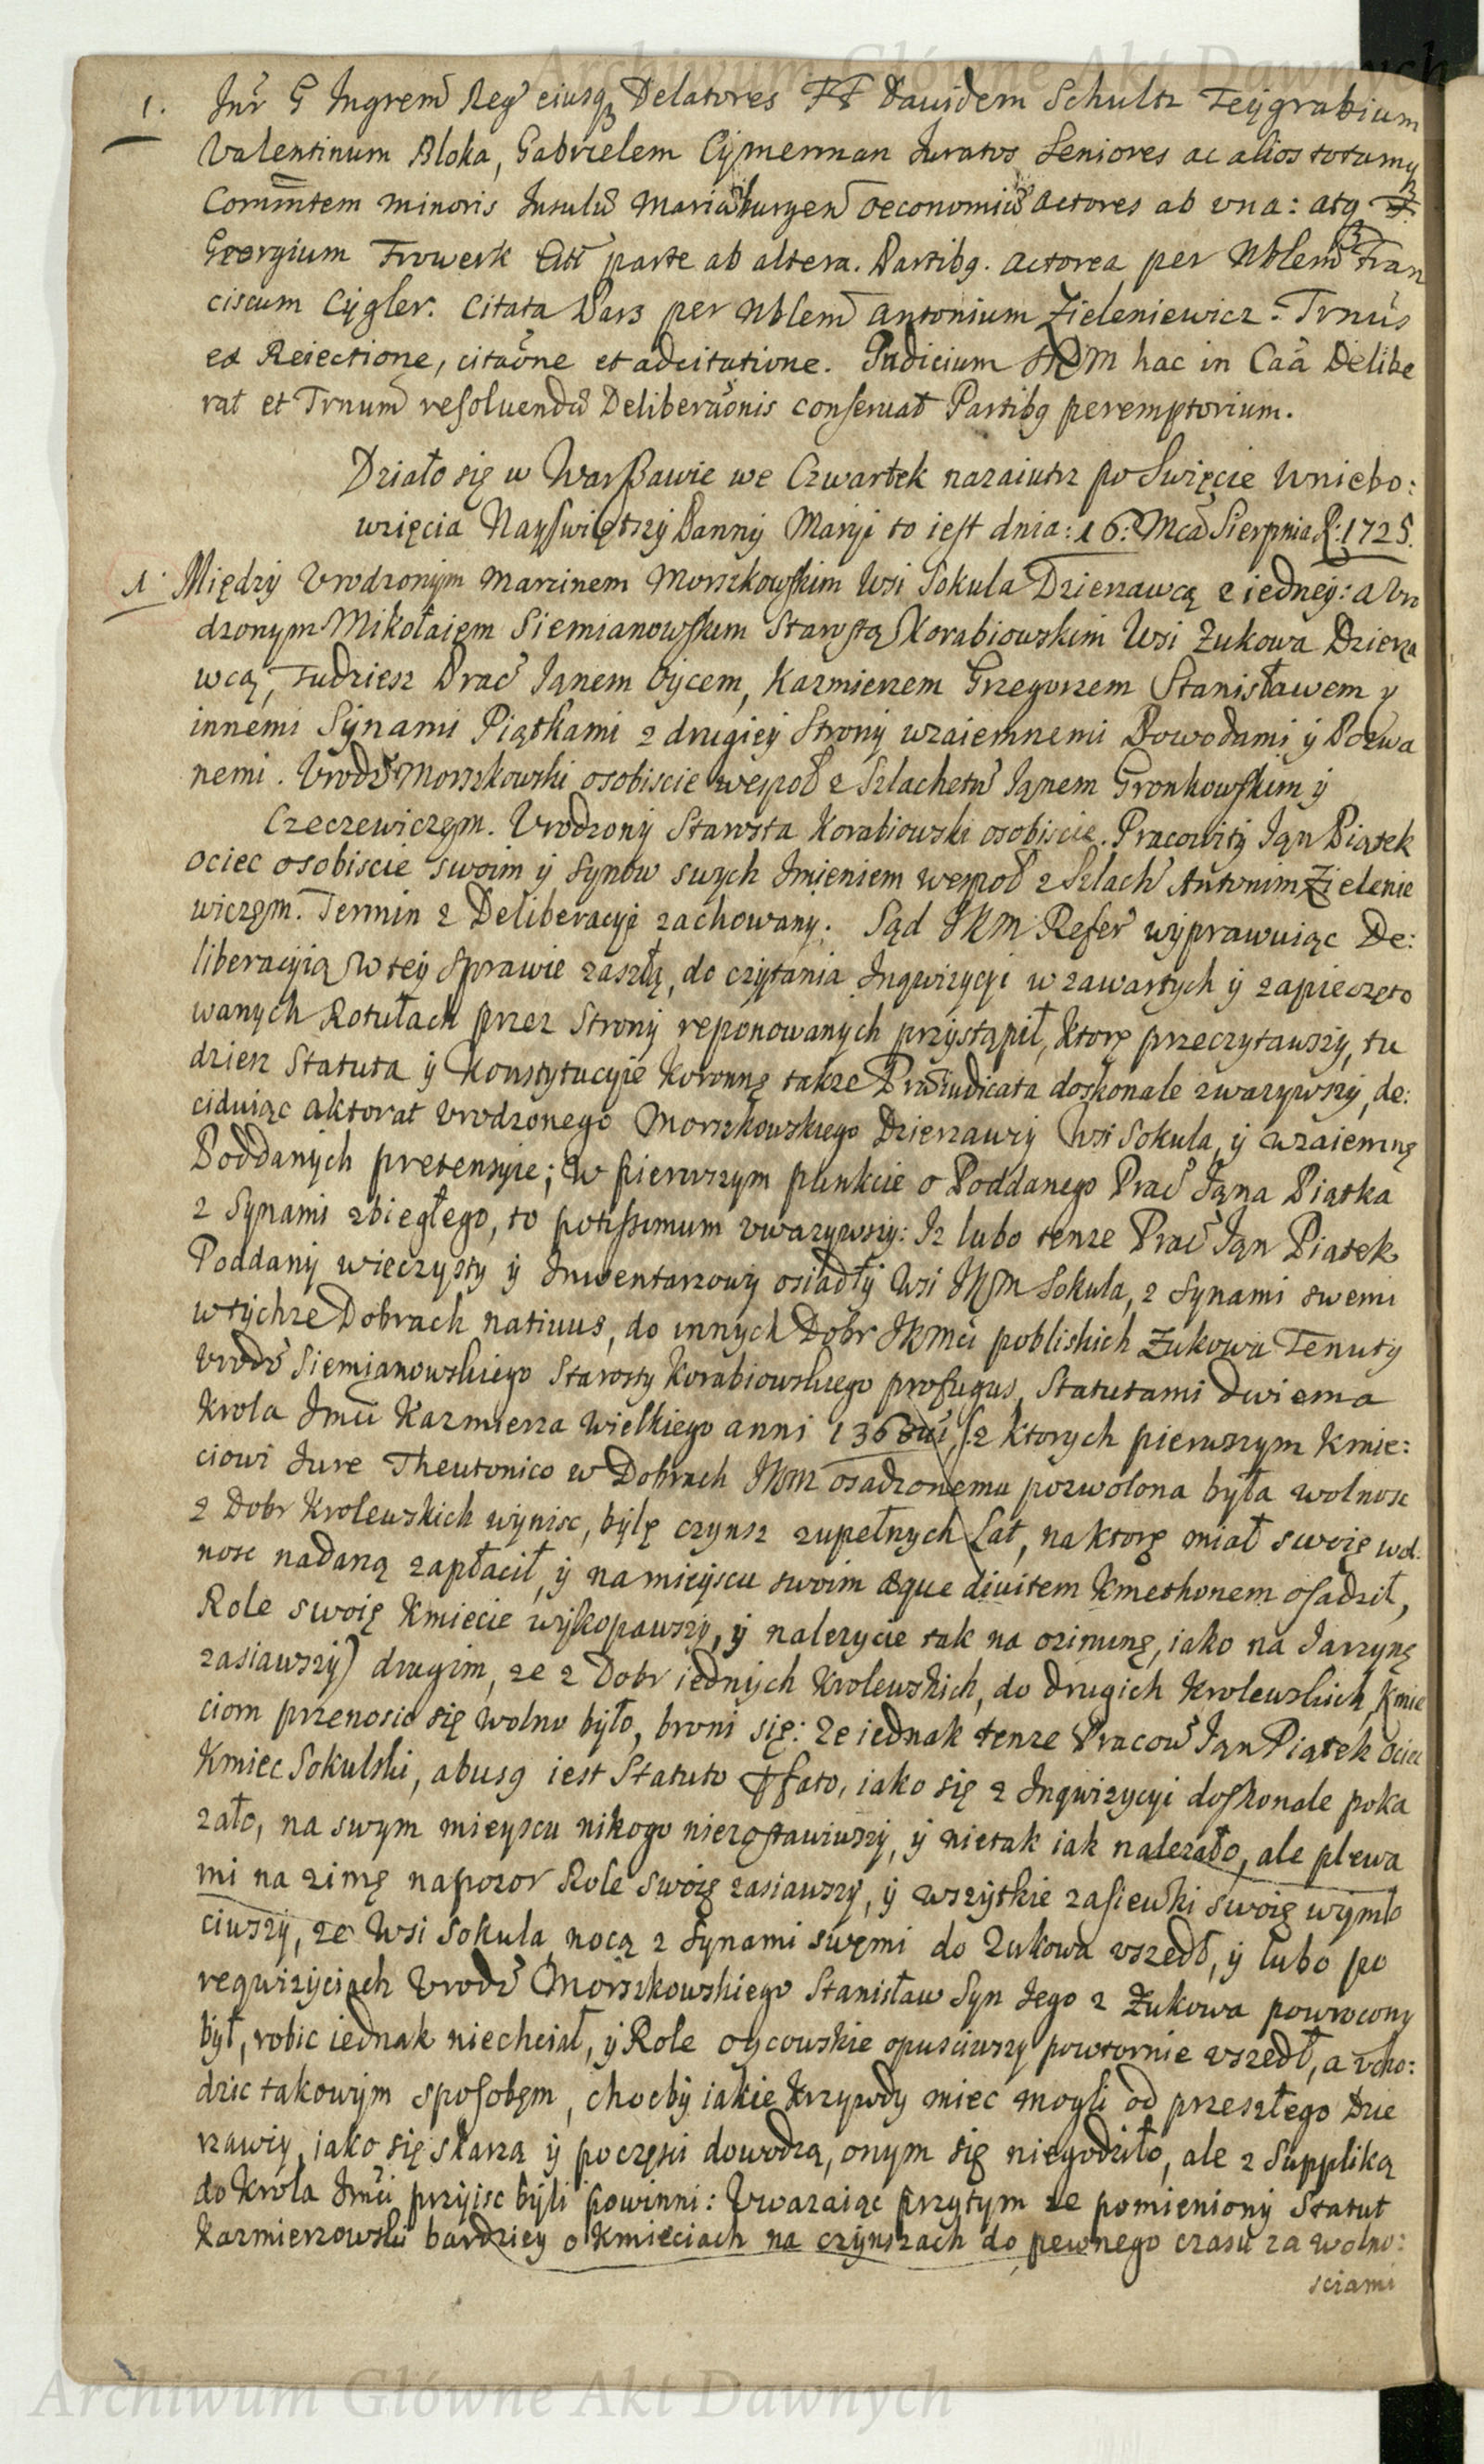 Archiwum Główne Akt Dawnych
1. Inr G Ingrem Reg eiusq Delatores FF Dauidem Schultz Teygrabium
Valentinum Bloka, Gabrielem Cymerman Iuratos Seniores ac alios totumq
Commtem minoris Insulæ Mariæburgen oeconomiæ actores ab vna: atq F.
Georgium Trowerk Citt parte ab altera. Partibq. actorea per Nblem Fran
ciscum Cygler. Citata Pars per Nblem Antonium Zieleniewicz. Trnus
ex Reiectione, citaone et adcitatione. Iudicium SRM hac in Caa Delibe
rat et Trnum resoluendæ Deliberaonis conseruat Partibq peremptorium.
Działo się w Warßawie we Czwartek nazaiutrz po Swięcie Wniebo:
wzięcia Nayswiętszy Panny Maryi to iest dnia: 16: Mca Sierpnia R: 1725.
1. Między Vrodzonym Marcinem Morszkowskim Wsi Sokula Dzierzawcą z iedney: a Vro
dzonym Mikołaięm Siemianowskim Starostą Korabiowskim Wsi Zukowa Dzierza
wcą, Tudziesz Prac Iąnem Oycem, Kazmierzem Grzegorzem Stanisławem y
innemi Synami Piątkami z drugiey Strony wzaiemnemi Powodami y Pozwa
nemi. Vrodz Morszkowski osobiscie wespoł z Szlachetn Iąnem Gronkowskim y
Czeczewiczęm. Vrodzony Starosta Korabiowski osobiscie. Pracowity Iąn Piątek
ociec osobiscie swoim y synow swych Imięniem wespoł z Szlach Antonim Zielenie
wiczęm. Termin z Deliberacyi zachowany. Sąd JKM Refer wyprawuiąc De:
liberacyią w tey sprawie zaszłą, do czytania Inqwizycyi w zawartych y zapieczęto
wanych Rotułach przez Strony reponowanych przystąpił, ktorę przeczytawszy, tu
dziesz Statuta y Konstytucyie Koronnę takze Præiudicata doskonale zwazywszy, de:
ciduiąc aktorat Vrodzonego Morszkowskiego Dzierzawcy Wsi Sokula, y wzaiemnę
Poddanych pretensyie; W pierwszym punkcie o Poddanego Prac Iąna Piątka
z Synami zbiegłego, to potissimum vwazywszy: Iz lubo tenze Prac Iąn Piątek
Poddany wieczysty y Inwentarzowy osiadły Wsi JKM Sokula, z synami swemi
w tychze Dobrach natiuus, do innych Dobr JKMci pobliskich Zukowa Tenuty
Vrodz Siemianowskiego Starosty Korabiowskiego profugus, Statutami dwiema
Krola Jmci Kazmierza Wielkiego anni (z ktorych pierwszym Kmie:
ciowi Iure Theutonico w Dobrach JKM osadzonemu pozwolona była wolnosc
z Dobr Krolewskich wynisc, bylę czynsz zupełnych Lat, na ktorę miał swoię wol:
nosc nadaną zapłacił, y na mieyscu swoim æque diuitem Kmethonem osadził,
Role swoię Kmiecie wykopawszy, y nalezycie tak na oziminę, iako na Jarzynę
zasiawszy) drugim, ze z Dobr iednych Krolewskich, do drugich Krolewskich, Kmie
ciom przenosic się wolno było, broni się: Ze iednak tenze Pracow Iąn Piątek Ociec
Kmiec Sokulski, abusq iest Statuto Pfato, iako się z Inqwizycyi doskonale poka
zało, na swym mieyscu nikogo niezostawiwszy, y nietak iak nalezało, ale plewa
mi na zimę napozor Role swoię zasiawszy, y wszytkie zasiewki swoię wymło
ciwszy, ze Wsi Sokula nocą z synami swęmi do Zukowa vszedł, y lubo po
reqwizyciach Vrodz Morszkowskiego Stanisław Syn Jego z Zukowa powrocony
był, robic iednak niechciał, y Role oycowskie opusciwszy powtornie vszedł, a vcho:
dzic takowym sposobęm, chocby iakie Krzywdy miec mogli od przeszłego Dzie
rzawcy, iako się skarzą y poczęsci dowodzą, onym się niegodziło, ale z Suppliką
do Krola Jmci przyisc byli powinni: Vwazaiąc przytym ze pomieniony Statut
Kazmierzowski bardziey o Kmieciach na czynszach do pewnego czasu za wolno:
sciami
Archiwum Główne Akt Dawnych